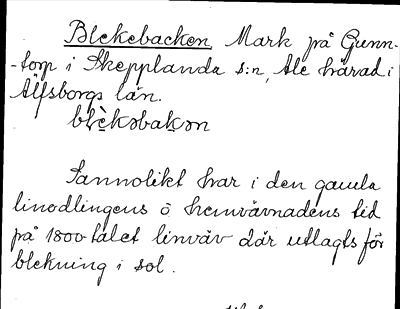 Blekebacken Mark på Gunn-
-torp i Skepplanda s:n, Ale härad i
Älfsborgs län.
blèkəbakən
Sannolikt har i den gamla
linodlingens o hemvävnadens tid
på 1800 talet linväv där utlagts för
blekning i sol.